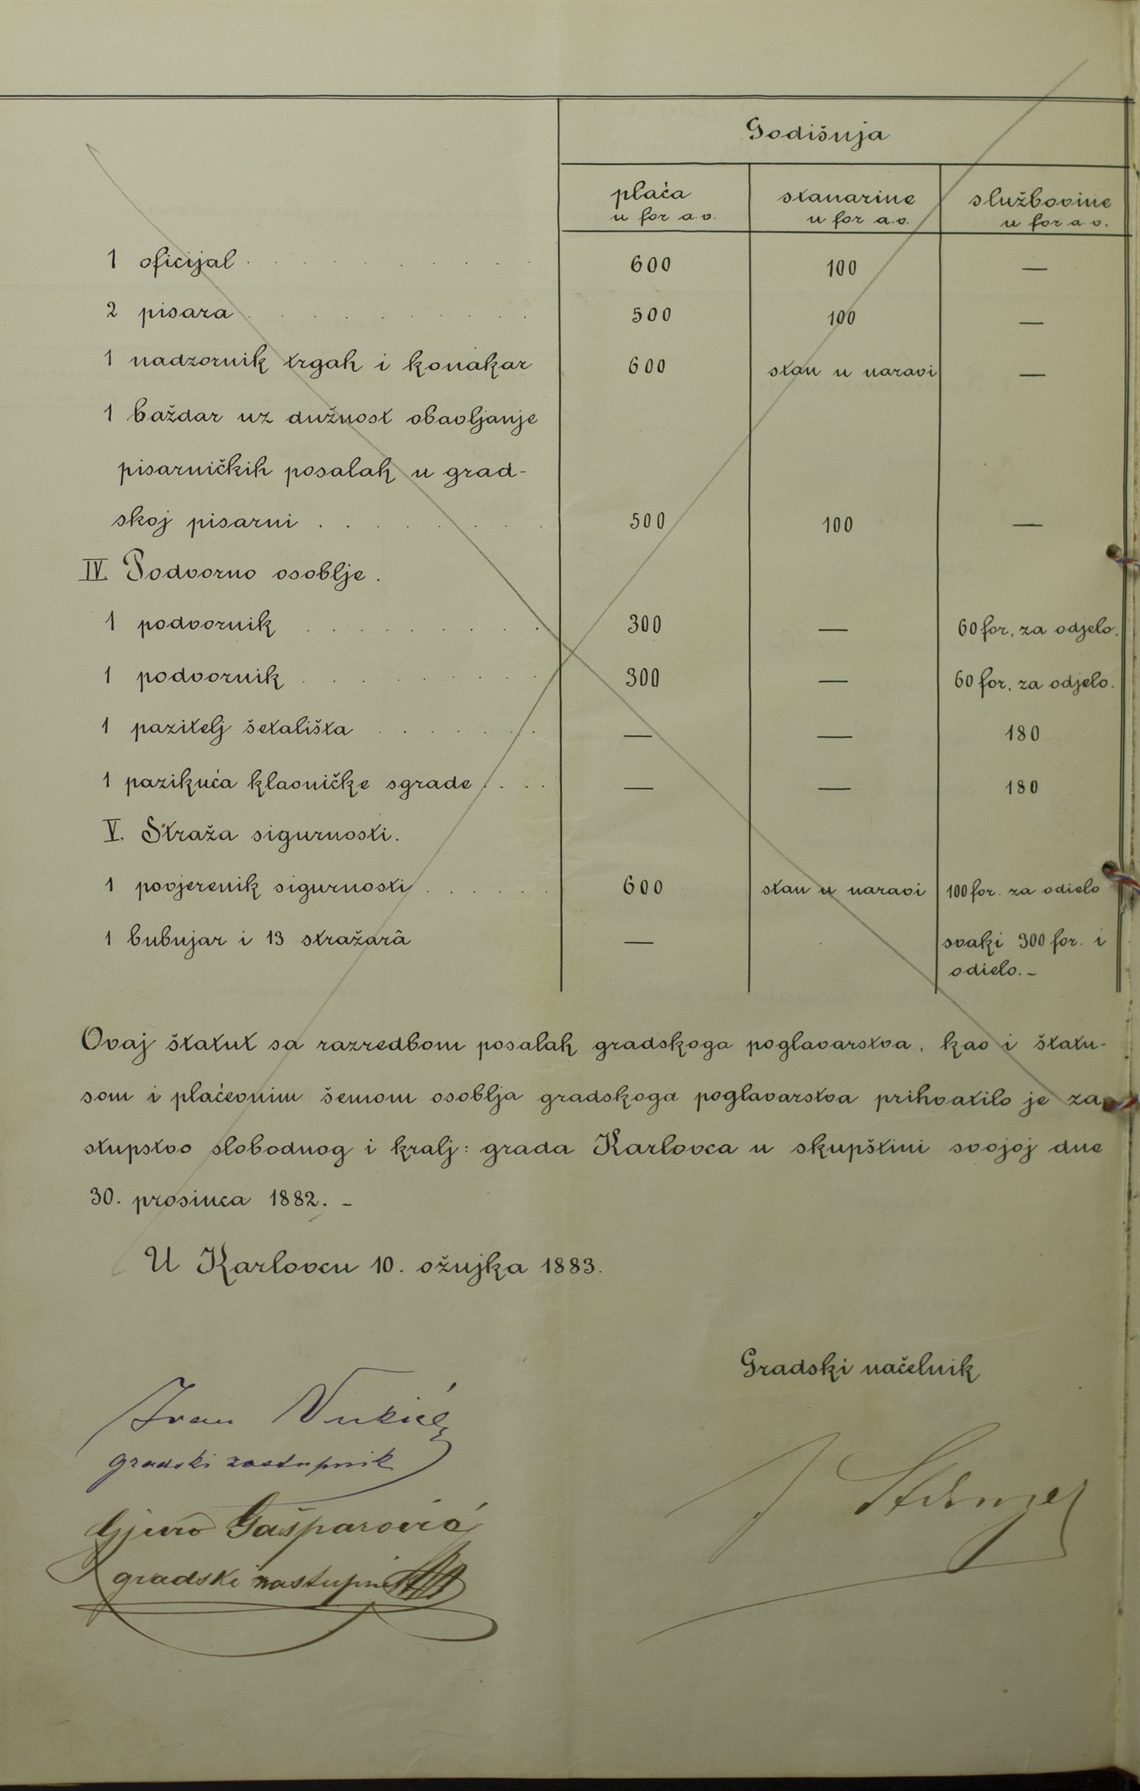 Godišnja
plaća stanarine službovine
u for a.v. u for a.v. u for a.v.
1 oficijal . . . . . . . . . . . 600 100 —
2 pisara . . . . . . . . . . . 500 100 —
1 nadzornik trgah i konakar 600 stan u naravi —
1 baždar uz dužnost obavljanje
pisarničkih posalah u grad-
skoj pisarni . . . . . . . . 500 100 —
IV. Podvorno osoblje.
1 podvornik . . . . . . . . . 300 — 60 for. za odjelo.
1 podvornik . . . . . . . . . 300 — 60 for. za odjelo.
1 pazitelj šetališta . . . . . . . — — 180
1 pazikuća klaoničke sgrade . . . . — — 180
V. Straža sigurnosti.
1 povjerenik sigurnosti . . . . . . 600 stan u naravi 100 for. za odielo
1 bubnjar i 13 stražarâ — svaki 300 for. i
odielo. –
Ovaj štatut sa razredbom posalah gradskoga poglavarstva, kao i štatu-
som i plaćevnim šemom osoblja gradskoga poglavarstva prihvatilo je za-
stupstvo slobodnog i kralj: grada Karlovca u skupštini svojoj dne
30. prosinca 1882. –
U Karlovcu 10. ožujka 1883.
Gradski načelnik
Ivan Vukić
gradski zastupnik
Gjuro Gašparović
gradski zastupnik